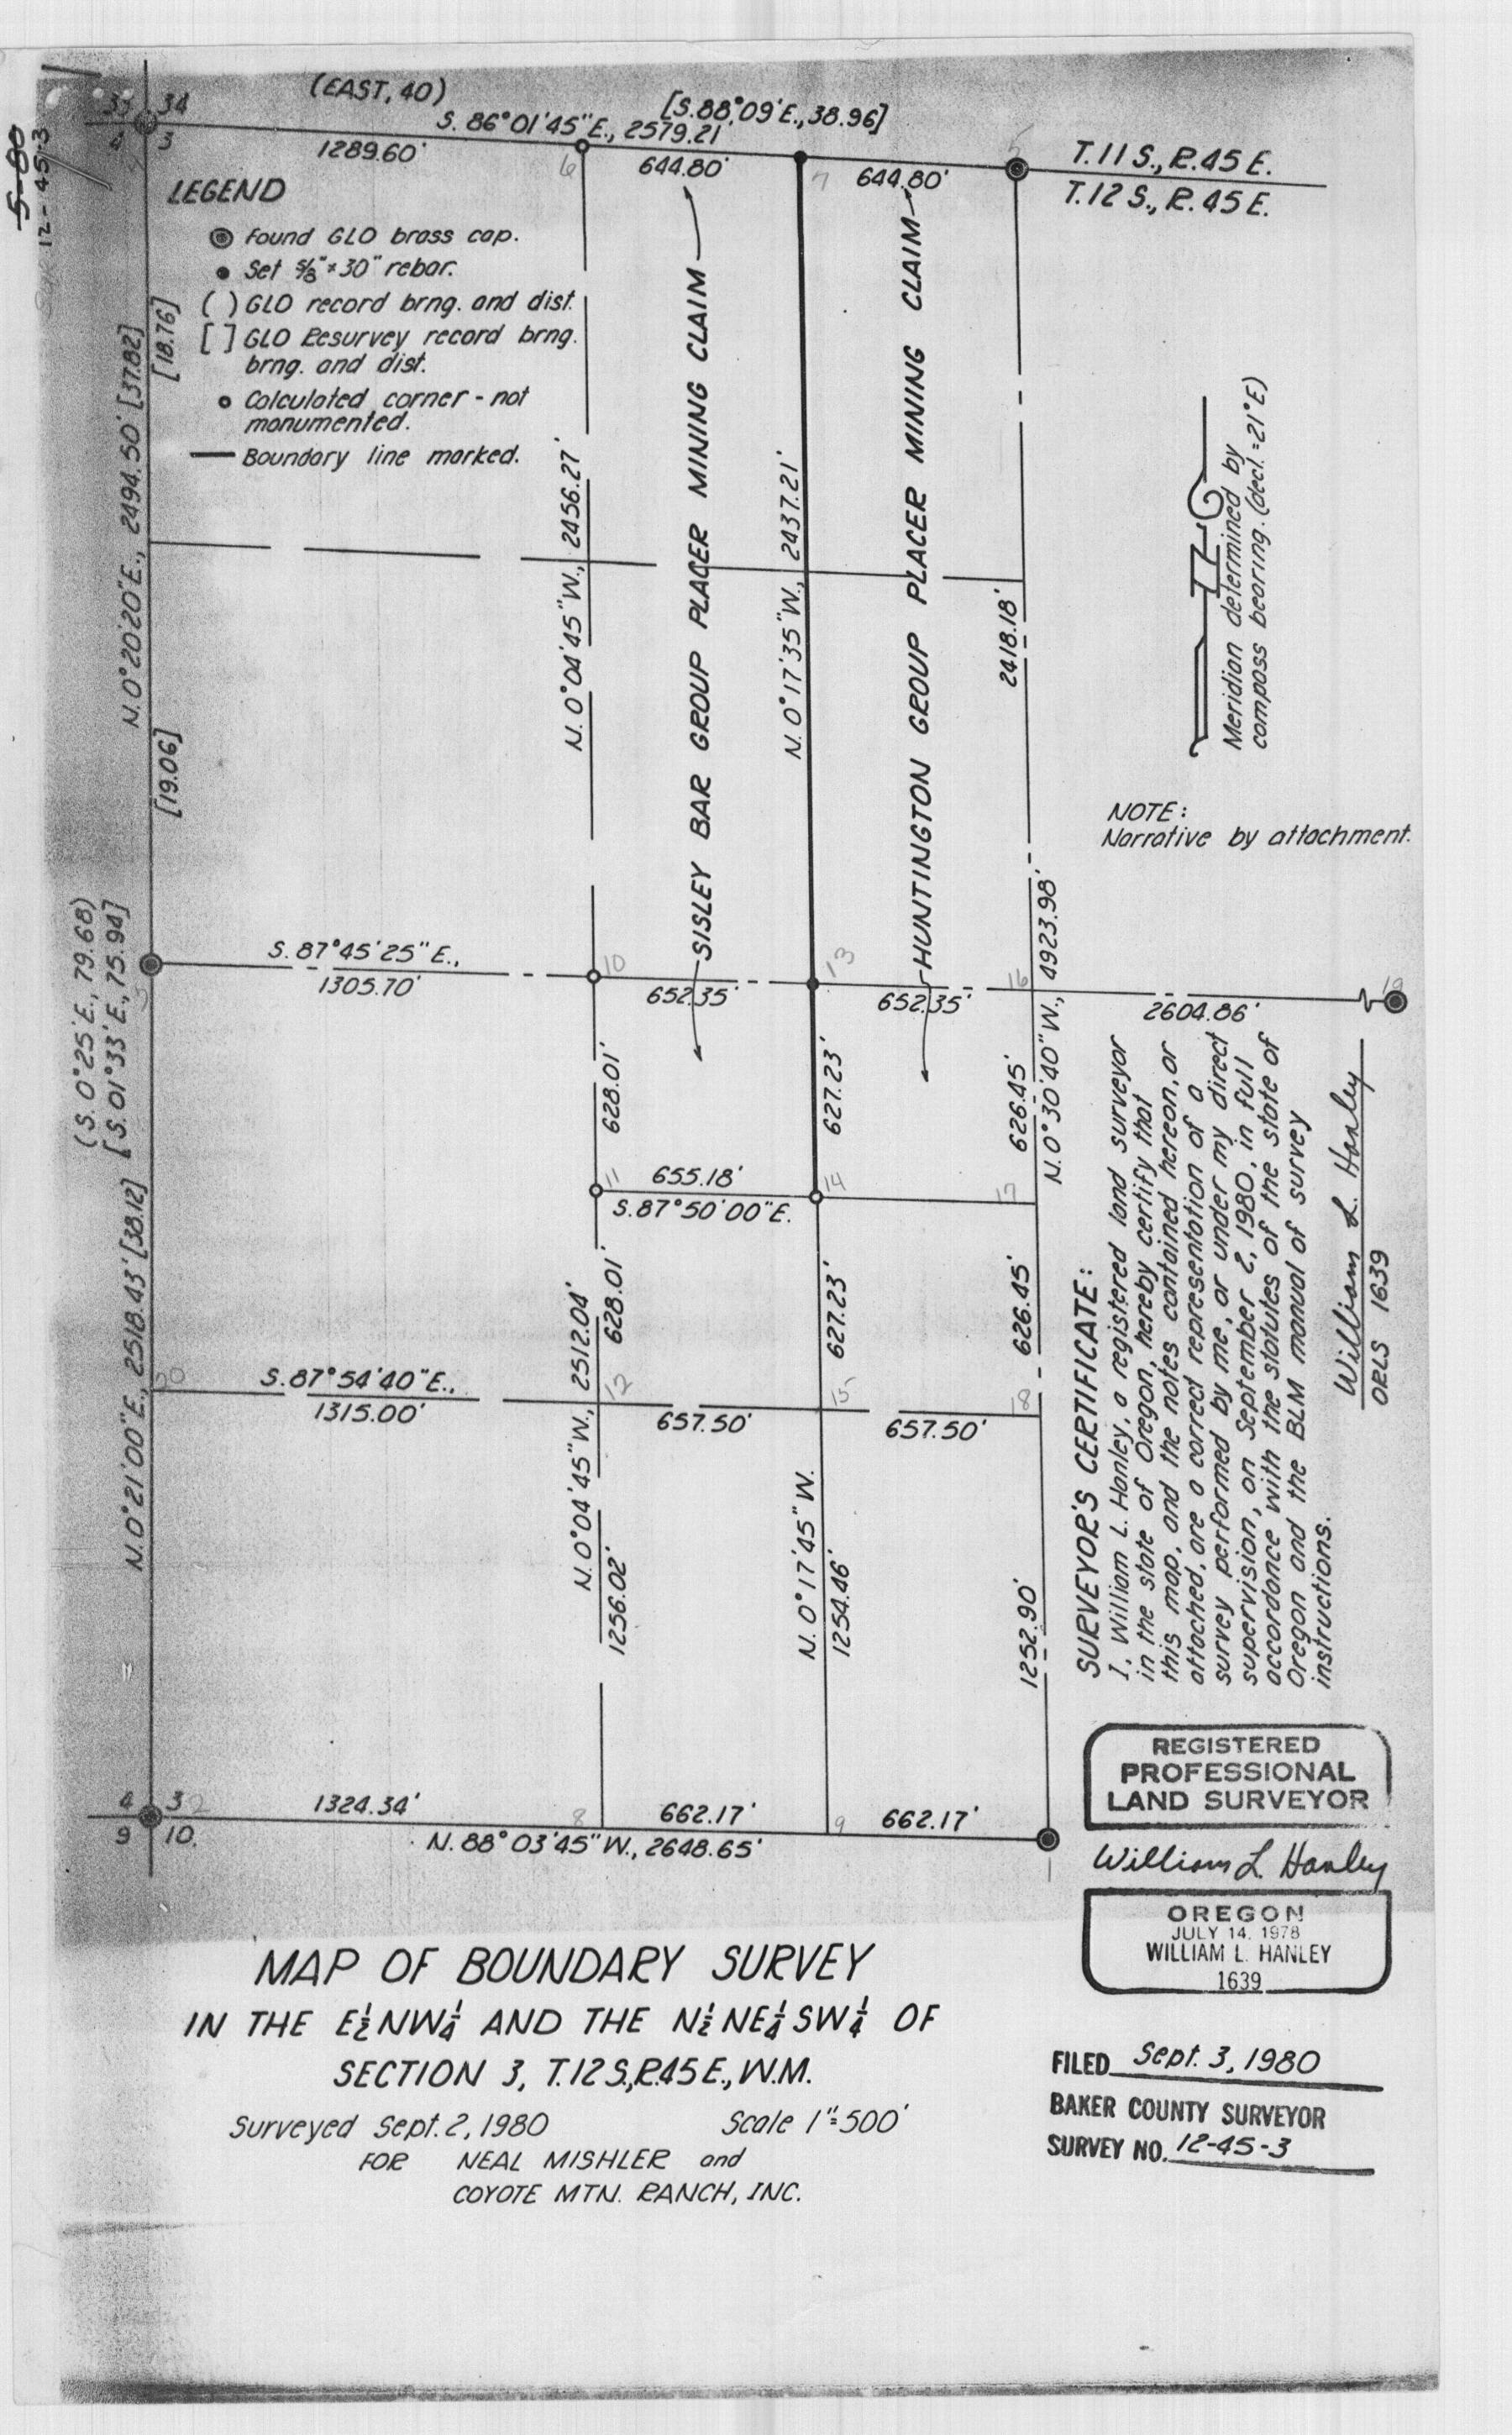 5-80
12-45-3
33 34
4 3
(EAST, 40)
[S.88°09'E.,38.96]
S. 86°01'45"E., 2579.21'
1289.60'
6
644.80'
7
644.80'
5
T.11 S., R.45 E.
T.12 S., R.45 E.
LEGEND
Found GLO brass cap.
Set 5/8"x30" rebar.
( ) GLO record brng. and dist.
[ ] GLO Resurvey record brng.
brng. and dist.
Calculated corner - not
monumented.
Boundary line marked.
N.0°20'20"E., 2494.50' [37.82]
[18.76]
[19.06]
N. 0°04'45"W., 2456.27'
SISLEY BAR GROUP PLACER MINING CLAIM
N.0°17'35"W., 2437.21'
HUNTINGTON GROUP PLACER MINING CLAIM
2418.18'
Meridian determined by
compass bearing. (decl.=21°E)
NOTE:
Narrative by attachment.
(S. 0°25'E., 79.68)
[S. 01°33'E., 75.94]
S. 87°45'25"E.,
1305.70'
10
652.35'
13
652.35'
16
2604.86'
19
N.0°30'40"W., 4923.98'
628.01'
627.23'
626.45'
11
655.18'
S.87°50'00"E.
14
17
628.01'
627.23'
626.45'
N.0°21'00"E., 2518.43' [38.12]
20
S. 87°54'40"E.,
1315.00'
12
657.50'
15
657.50'
18
N. 0°04'45"W., 2512.04'
1256.02'
N. 0°17'45"W.
1254.46'
1252.90'
SURVEYOR'S CERTIFICATE:
I, William L. Hanley, a registered land surveyor
in the state of Oregon, hereby certify that
this map, and the notes contained hereon, or
attached, are a correct representation of a
survey performed by me, or under my direct
supervision, on September 2, 1980, in full
accordance with the statutes of the state of
Oregon and the BLM manual of survey
instructions.
William L. Hanley
ORLS 1639
4 3 2
9 10.
1324.34'
8
662.17'
9
662.17'
N.88°03'45"W., 2648.65'
REGISTERED
PROFESSIONAL
LAND SURVEYOR
William L Hanley
OREGON
JULY 14, 1978
WILLIAM L. HANLEY
1639
MAP OF BOUNDARY SURVEY
IN THE E½NW¼ AND THE N½NE¼SW¼ OF
SECTION 3, T.12S.,R.45E., W.M.
Surveyed Sept. 2, 1980 Scale 1"=500'
FOR NEAL MISHLER and
COYOTE MTN. RANCH, INC.
FILED Sept. 3, 1980
BAKER COUNTY SURVEYOR
SURVEY NO. 12-45-3